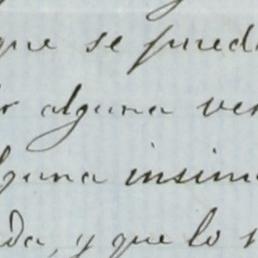 que se pued
r alguna ve
lguna insinu
da, y que lo s